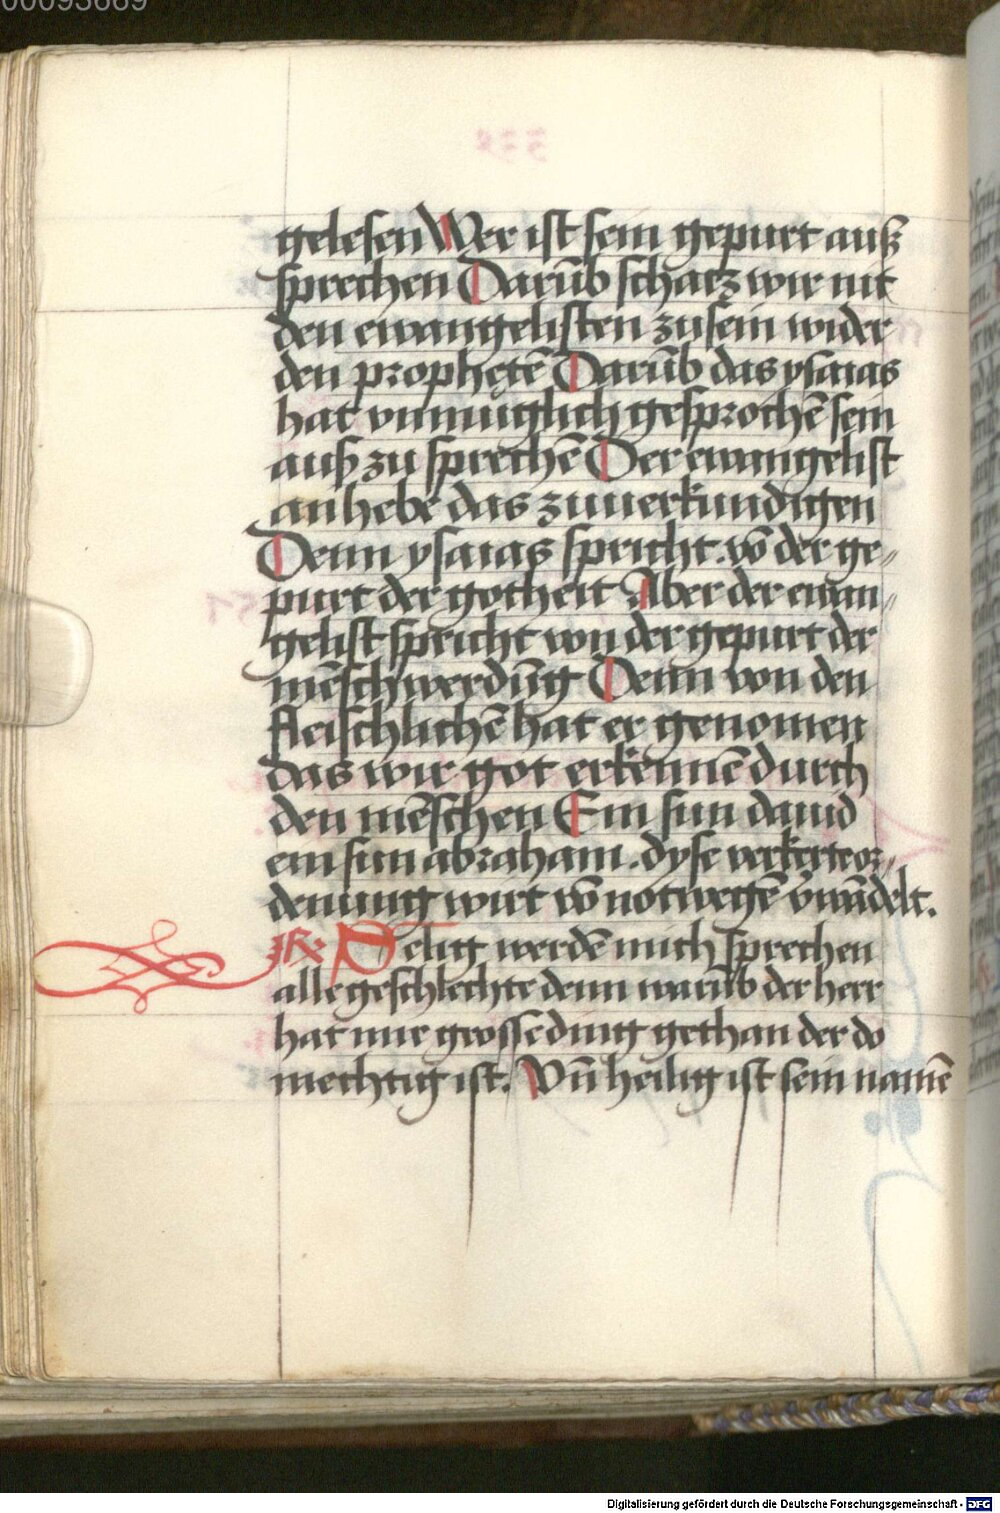 00093669
gelesen Wer ist sein gepurt auß
sprechen Darūb schatz wir nit
den ewangelisten zu sein wider
den prophetē Darūb das ysaias
hat vnmuglich gesprochē sein
auß zu sprechē Der ewangelist
an hebe das zuuerkundigen
Denn ysaias spricht. vō der ge⸗
purt der gotheit Aber der ewan⸗
gelist spricht von der gepurt der
mēschwerdūg Denn von den
fleischlichē hat er genomen
das wir got erkennē durch
den mēschen Ein sun dauid
ein sun abraham. dyse verkerte or⸗
denung wirt vō notwegē v̄wādelt.
℟ Selig werdē mich sprechen
alle geschlechte denn warūb der herr
hat mir grosse ding gethan der do
mechtig ist. Vn̄ heilig ist sein namē
Digitalisierung gefördert durch die Deutsche Forschungsgemeinschaft - DFG